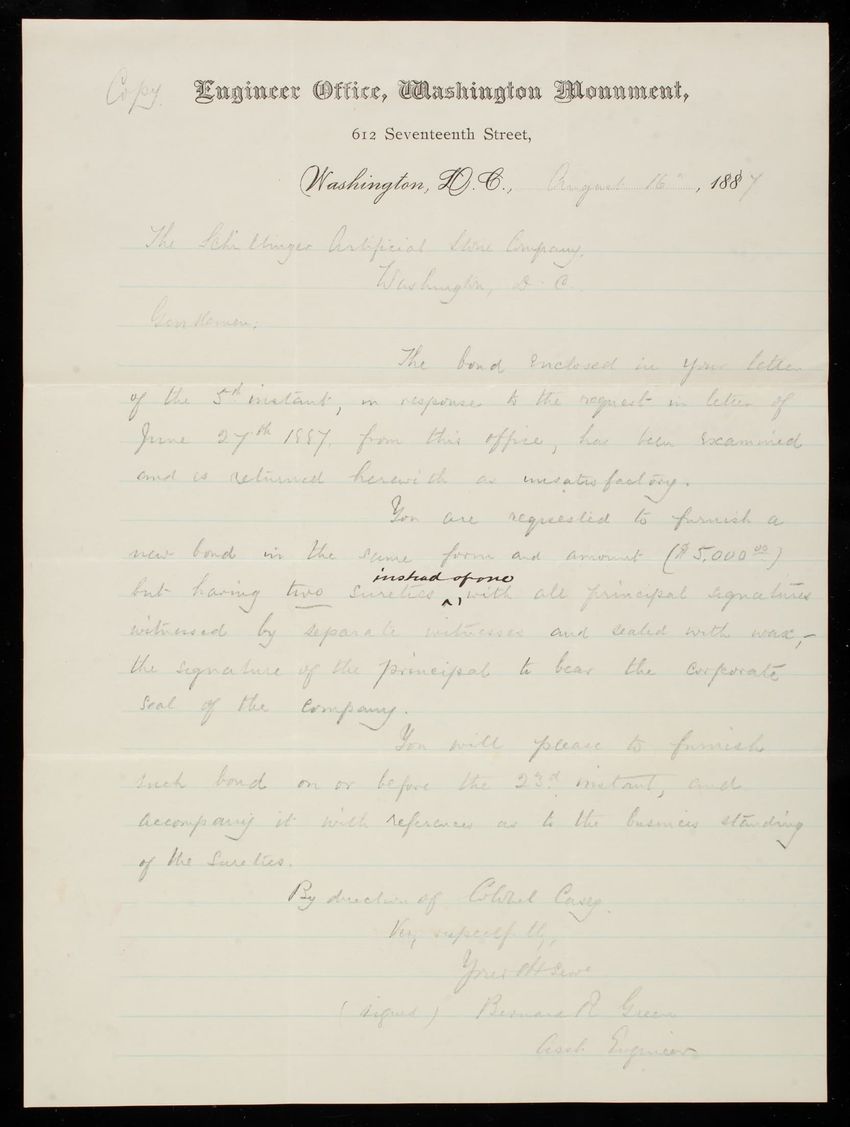 Copy.
Engineer Office, Washington Monument,
612 Seventeenth Street,
Washington, D.C., August 16", 1887
The Schillinger Artificial Stone Company,
Washington, D. C.
Gentlemen:
The bond enclosed in your letter
of the 5th instant, in response to the request in letter of
June 27th 1887. from this office, has been examined
and is returned herewith as unsatisfactory.
You are requested to furnish a
new bond in the same form and amount ($5,000 00)
instead of one
but having two sureties ^, with all principal signatures
witnessed by separate witnesses and sealed with wax,-
the signature of the principal to bear the corporate
seal of the company.
You will please to furnish
such bond on or before the 23d instant, and
accompany it with references as to the business standing
of the Sureties.
By direction of Colonel Casey.
Very respectfully,
Your Obt Serv
(signed) Bernard R Green
Asst. Engineer